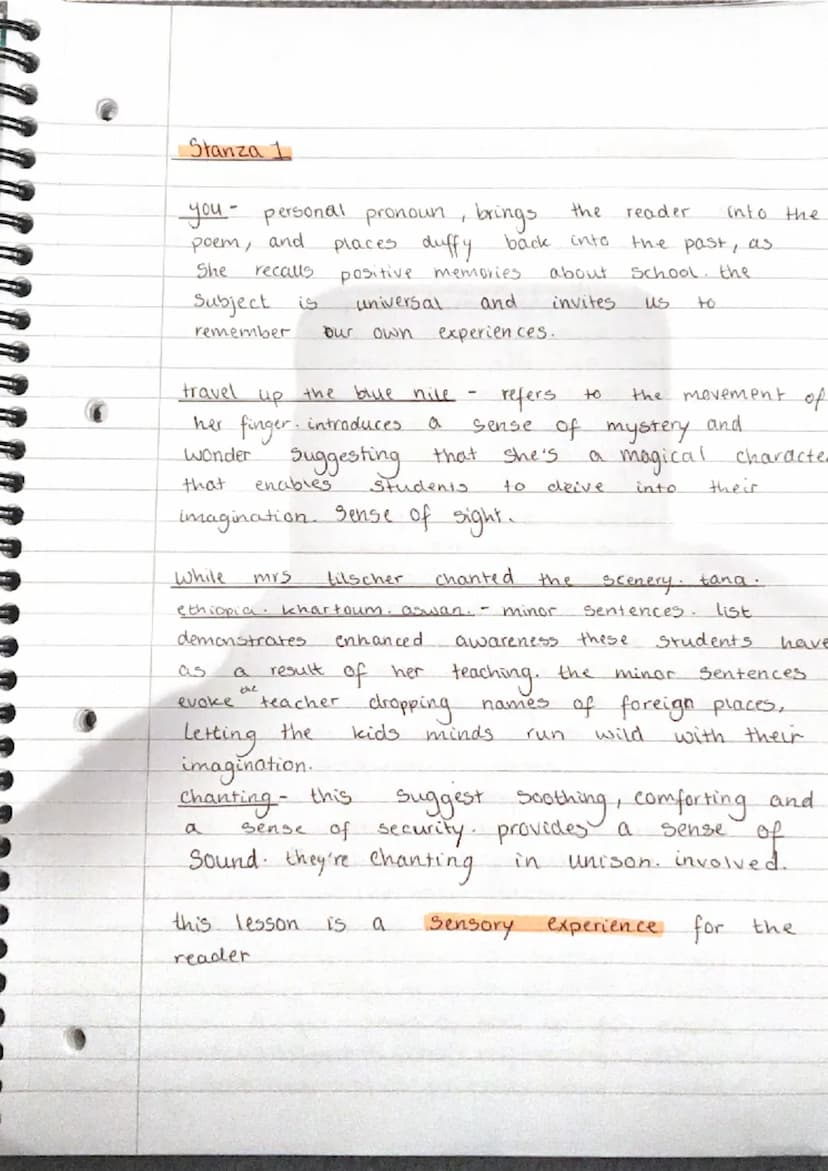 Stanza 1
you - personal pronoun, brings the reader into the
poem, and places duffy back into the past, as
She recalls positive memories about school. the
Subject is universal and invites us to
remember our own experiences.
travel up the blue nile - refers to the movement of
her finger. introduces a sense of mystery and
wonder suggesting that she's a magical characte
that enables students to deive into their
imagination. Sense of sight.
While mrs tilscher chanted the scenery. tana.
ethiopia. khartoum. aswan. - minor sentences. list
demonstrates enhanced awareness these students have
as a result of her teaching. the minor sentences
evoke the teacher dropping names of foreign places,
letting the kids minds run wild with their
imagination.
Chanting - this suggest soothing, comforting and
a sense of security. provides a sense of
Sound. they're chanting in unison. involved.
this lesson is a sensory experience for the
reader